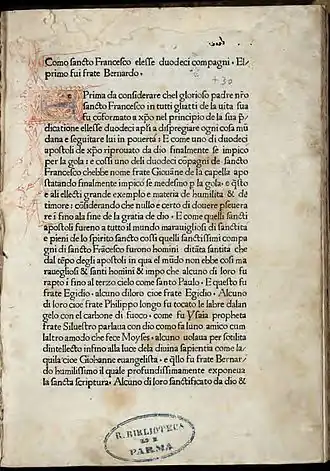 Como sancto Francesco elesse duodeci compagni. El
primo fui frate Bernardo.
+30
Prima da considerare chel glorioso padre nr̃o
sancto Francesco in tutti gliatti de la uita sua
fu cõformato a xp̃o nel principio de la sua p̃
dicatione ellesse duodeci apl̃i a dispregiare ogni cosa mũ
dana e seguitare lui in pouerta: E come uno di duodeci
apostoli de xp̃o riprouato da dio finalmente se impico
per la gola: e cossi uno deli duodeci cõpagni de sancto
Francesco chebbe nome frate Giouãne de la capella apo
statando finalmente impicò se medesmo p la gola. e q̃sto
e ali ellecti grande exemplo e materia de humilita & de
timore: cõsiderando che nullo e certo di douere pseuera
re ifino ala fine de la gratia de dio. E come quelli sancti
apostoli fureno a tutto il mundo marauigliosi di sanctita
e pieni de lo spirito sancto cosi quelli sanctissimi compa
gni di sancto Frãcesco furono homini ditãta sanctita che
dal tẽpo degli apostoli in qua el mũdo non ebbe cosi ma
rauegliosi & santi homini & impo che alcuno di loro fu
rapto ifino al terzo cielo come santo Paulo: e questo fu
frate Egidio. alcuno diloro cioe frate Egidio. Alcuno
di loro cioe frate Philippo longo fu tocato le labre dalan
gelo con el carbone di fuoco. come fu Ysaia propheta
frate Siluestro parlaua con dio como fa luno amico cum
laltro amodo che fece Moyses. alcuno uolaua per sotilita
dintellecto infino alla luce dela diuina sapientia come la
quila cioe Giohanne euangelista. e q̃llo fu frate Bernar
do humilissimo il quale profundissimamente exponeua
la sancta scriptura. Alcuno di loro sanctificato da dio &
R. BIBLIOTECA
DI
PARMA